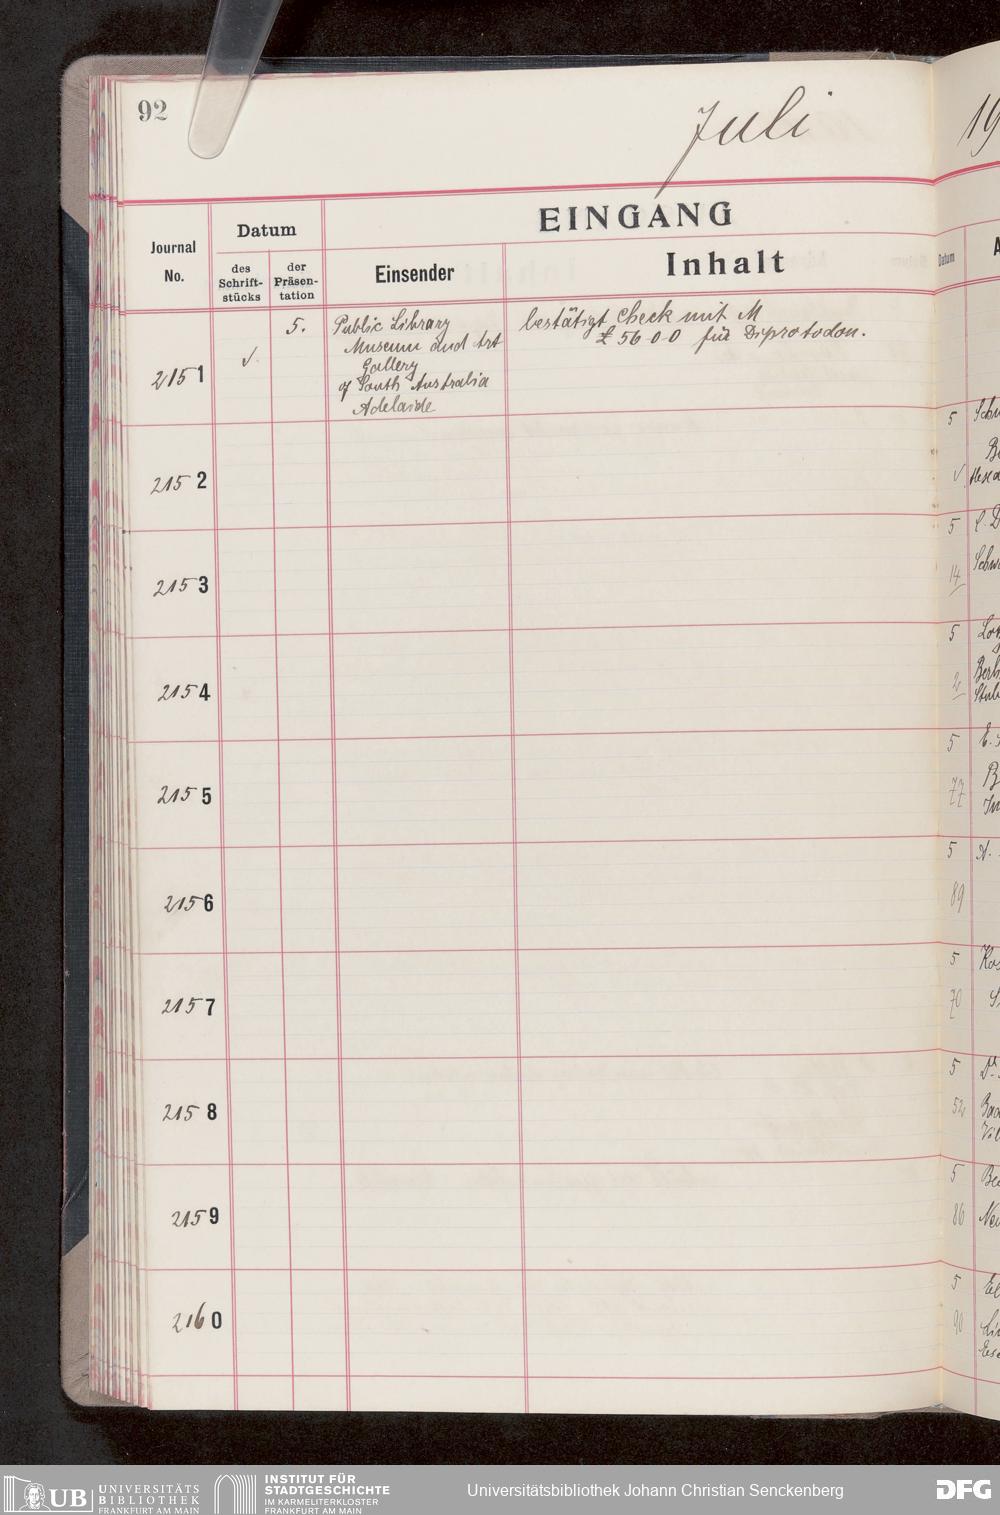 92
Juli
19
EINGANG
Journal
No.
Datum
des
Schrift-
stücks
der
Präsen-
tation
Einsender
Inhalt
Datum
A
2151
✓
5.
Public Library
Museum and Art
Gallery
of South Australia
Adelaide
bestätigt Check mit M
£ 56-0-0 für Diprotodon.
2152
2153
2154
2155
2156
2157
2158
2159
2160
5
✓
5
14
5
2
5
77
5
89
5
70
5
52
5
86
5
90
UB UNIVERSITÄTS
BIBLIOTHEK
FRANKFURT AM MAIN
INSTITUT FÜR
STADTGESCHICHTE
IM KARMELITERKLOSTER
FRANKFURT AM MAIN
Universitätsbibliothek Johann Christian Senckenberg
DFG